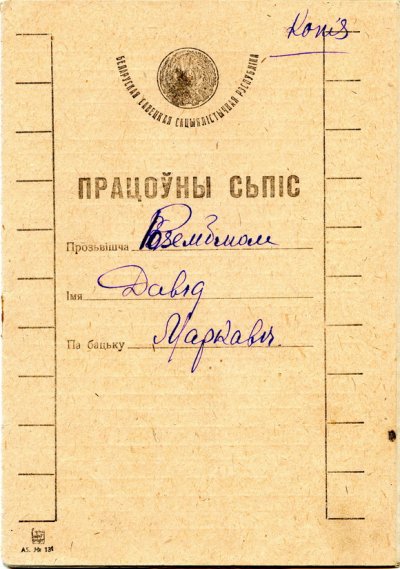 Копія
БЕЛАРУСКАЯ САВЕЦКАЯ САЦЫЯЛІСТЫЧНАЯ РЭСПУБЛІКА
ПРАЦОЎНЫ СЬПІС
Прозьвішча
Імя Давід
Па бацьку Маркавіч